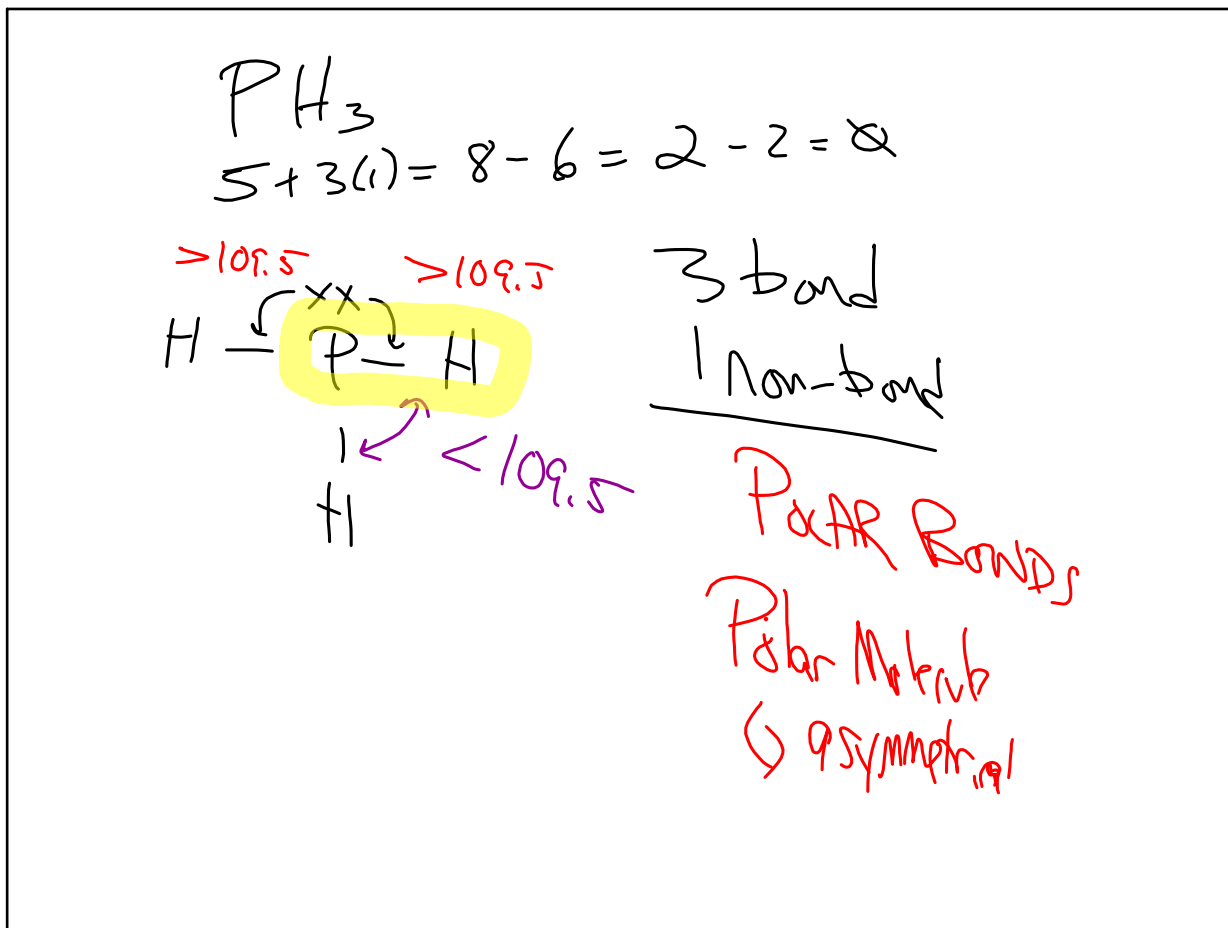 PH₃
5+3(1)= 8-6= 2-2=0
>109.5 >109.5
xx
H - P - H
<109.5
H
3 bond
1 non-bond
PolAR BONDs
Polar Molecule
↳ asymmetrical